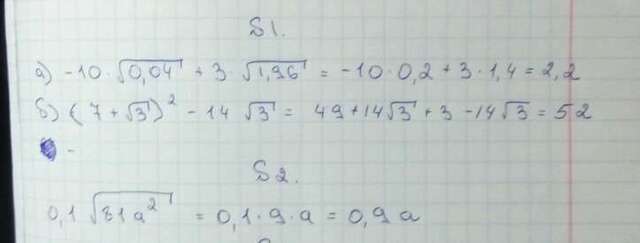 S1.
а) -10·√0,04 + 3·√1,96 = -10·0,2 + 3·1,4 = 2,2
б) (7 + √3)² - 14 √3 = 49 + 14√3 + 3 - 14√3 = 52
-
S2.
0,1 √81a² = 0,1·9·a = 0,9 a